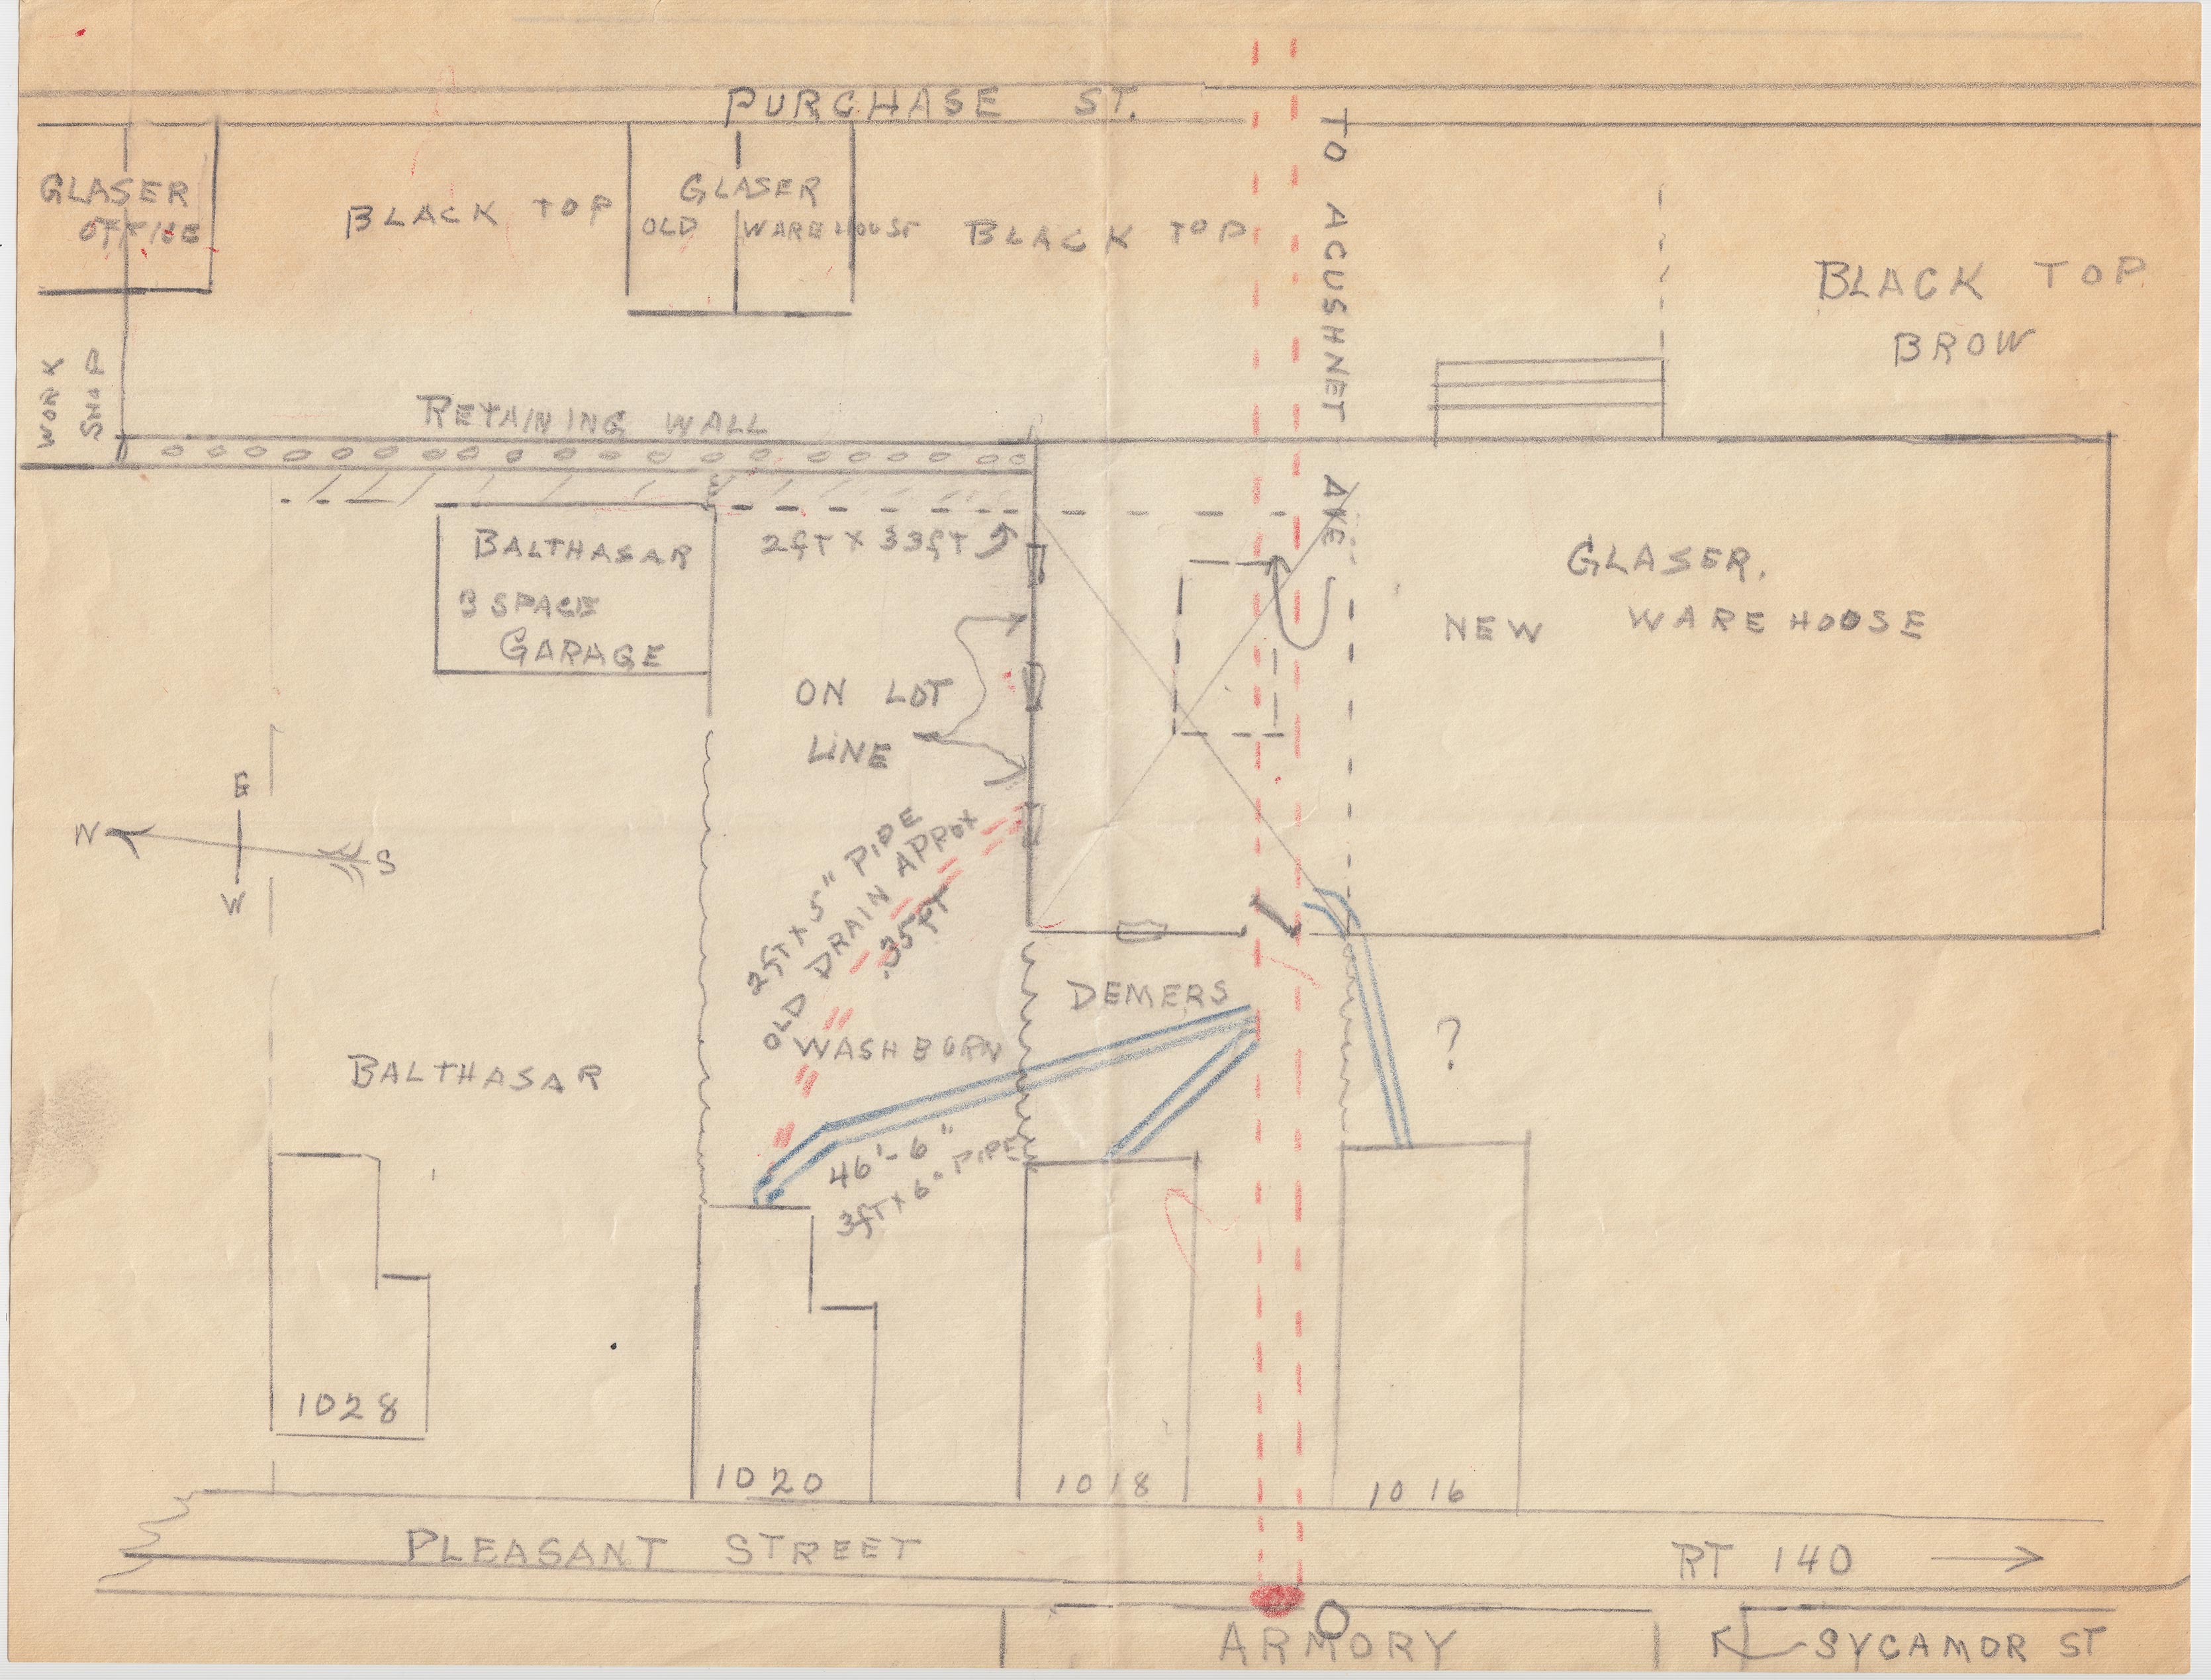 PURCHASE ST.
TO ACUSHNET AVE
GLASER
OFFICE
BLACK TOP
GLASER
OLD WAREHOUSE
BLACK TOP
BLACK TOP
BROW
WORK
SHOP
RETAINING WALL
2FT X 33FT
BALTHASAR
3 SPACE
GARAGE
GLASER.
NEW WAREHOUSE
ON LOT
LINE
E
N
S
W
2FT X 5" PIPE
OLD DRAIN APROX
.35FT
DEMERS
WASHBURN
?
BALTHASAR
46'-6"
3FT X 6" PIPE
1028
1020
1018
1016
PLEASANT STREET
RT 140
ARMORY
SYCAMOR ST